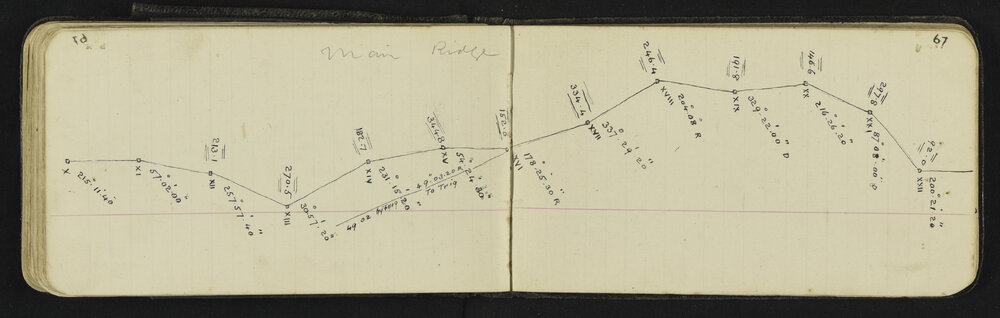 67
67
Main Ridge
X
235° 11' 40"
XI
57° 02' 00"
213.1
XII
257° 57' 40"
270.5
XIII
30° 57' 20"
182.7
XIV
231° 15' 20"
344.8
XV
54° 24' 30"
49° 03' 20 R
To Trig
49 02
152.0
XVI
178° 25' 30" R
334.4
XVII
337° 29' 20"
246.4
XVIII
204° 08' R
191.8
XIX
329° 22' 00" D
146.6
XX
216° 26' 20"
297.8
XXI
87° 08' 00 D
XXII
200° 21' 20"